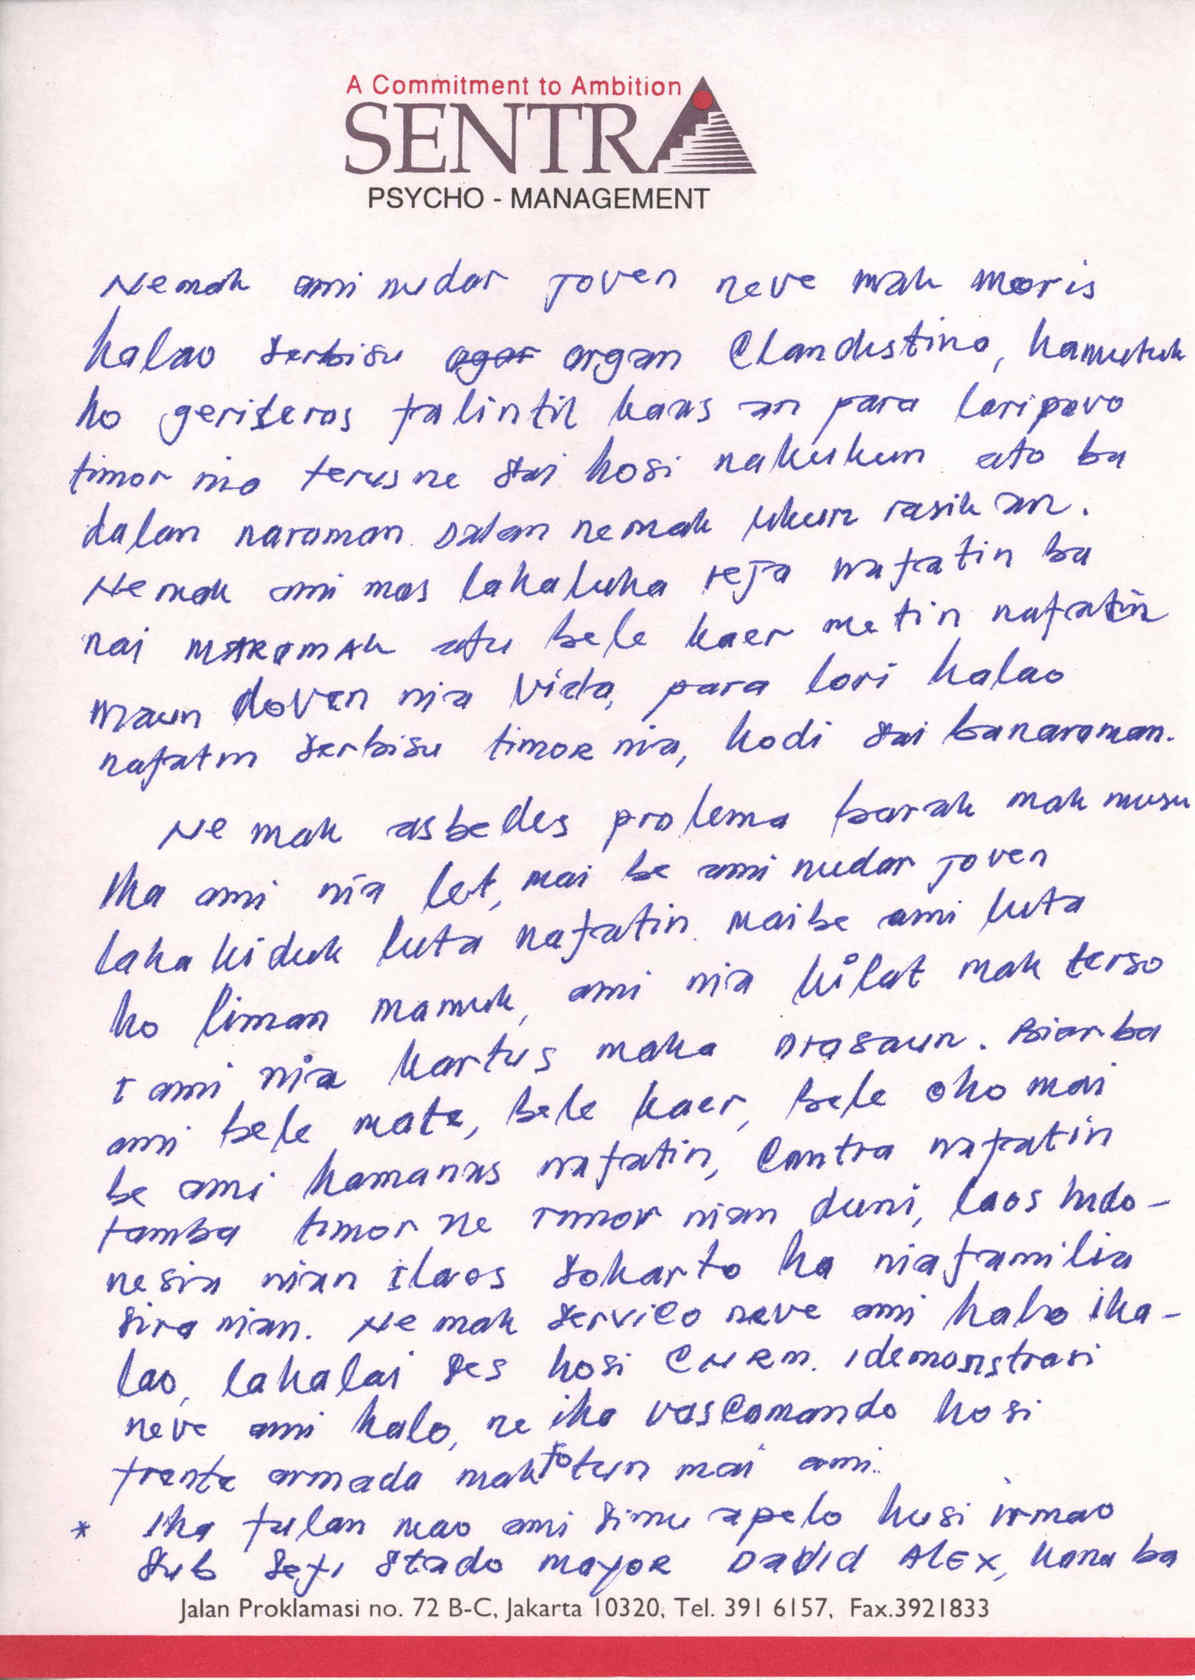 A Commitment to Ambition
SENTRA
PSYCHO - MANAGEMENT
Nemak ami nudar joven neve mak moris
halao serbisu organ Clandestino, hamutuk
ho geriseros falintil kaas an para lori povo
timor nia terus ne sai hosi nakukun ato ba
dalan naroman. Dalan nemak ukun rasik an.
Nemak ami mos lahaluha reja nafatin ba
nai MAROMAK atu bele kaer metin nafatin
maun doven nia vida, para lori halao
nafatin serbisu timor nia, hodi sai banaroman.
Ne mak asbedes prolema barak mak musu
Iha ami nia let, mai be ami nudar joven
laha kiduk luta nafatin. Maibe ami luta
ho liman mamuk, ami nia kilat mak terso
I ami nia kartus maka orasaun. Biar ba
ami bele mate, bele kaer, bele oho mai
be ami hamanas nafatin, Contra nafatin
tamba timor ne Timor nian duni, laos Indo-
nesia nian ilaos Soharto ha nia familia
sira nian. Ne mak servico neve ami halo iha-
lao, lahalai ses hosi CNRM. Idemonstrasi
neve ami halo, ne iha vos Comando hosi
frente armada mak fo tun mai ami.
* Iha fulan mao ami simu apelo husi irmao
Sub Sefi Stado mayor DAVID ALEX, hana ba
Jalan Proklamasi no. 72 B-C, Jakarta 10320, Tel. 391 6157, Fax.3921833